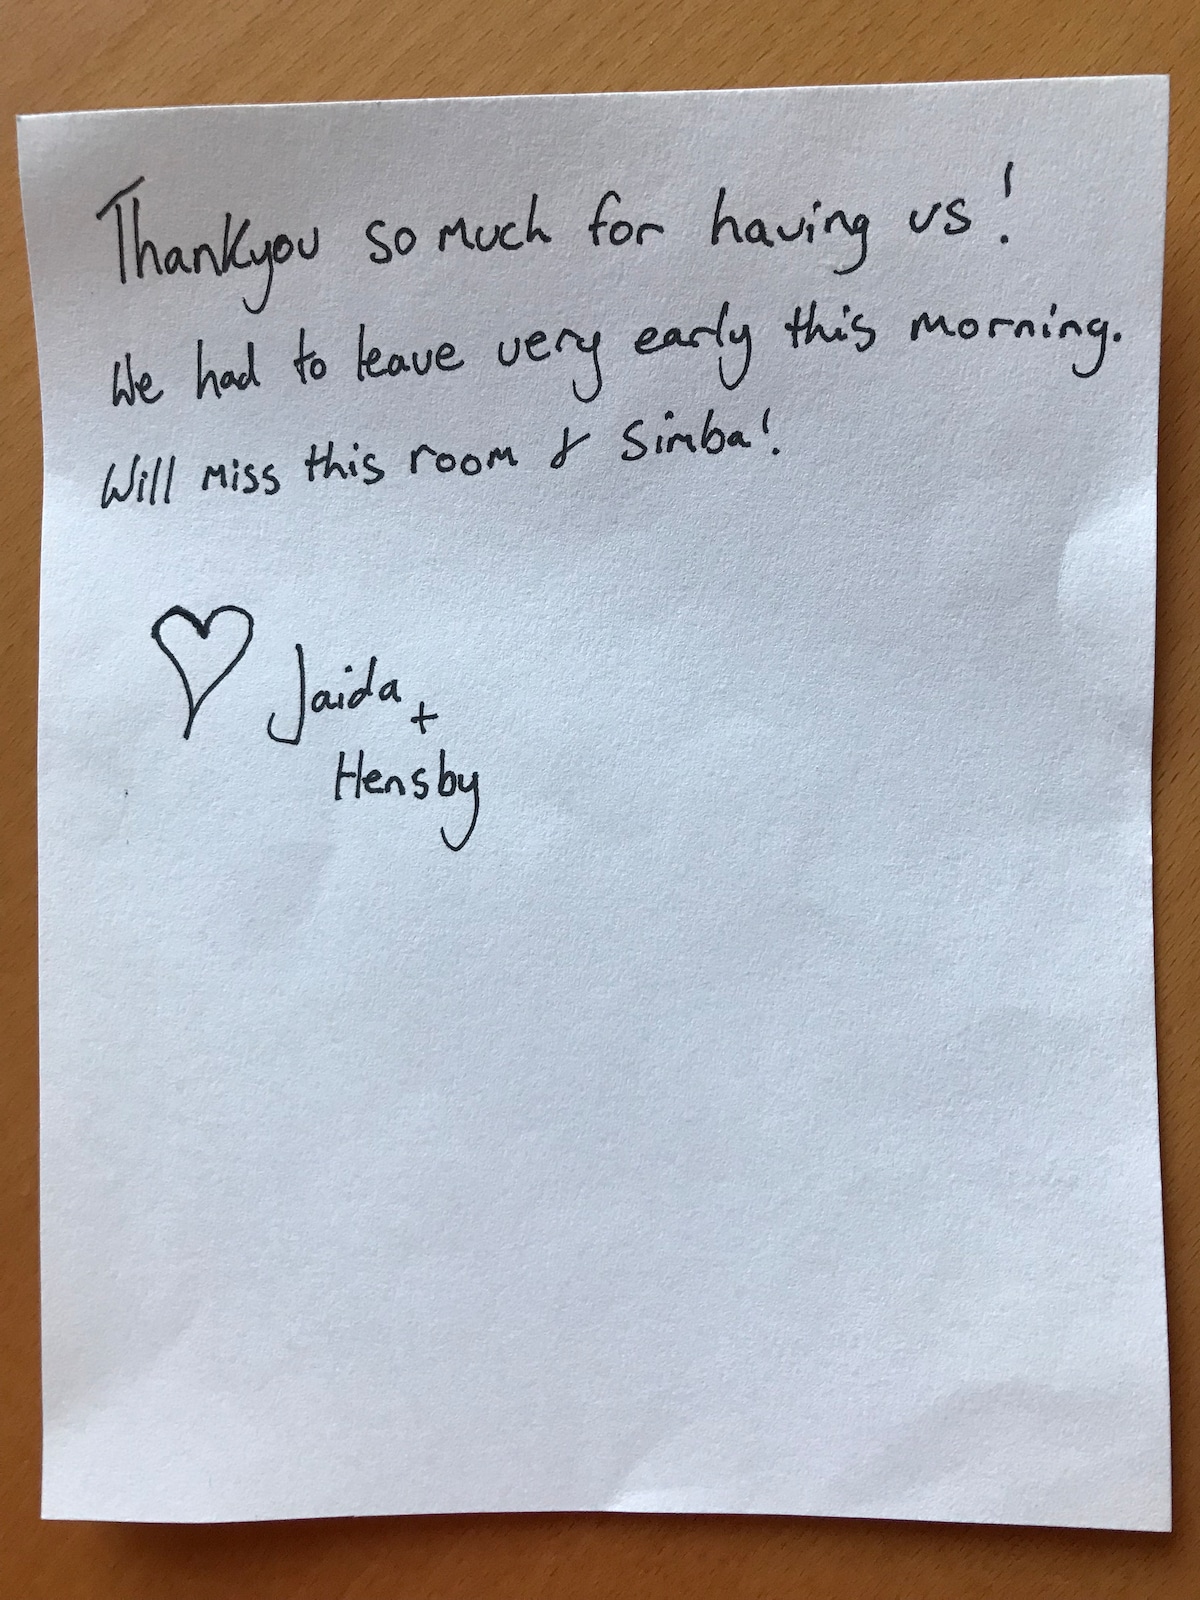 Thankyou so much for having us!
We had to leave very early this morning.
Will miss this room & Simba!
Jaida +
Hensby